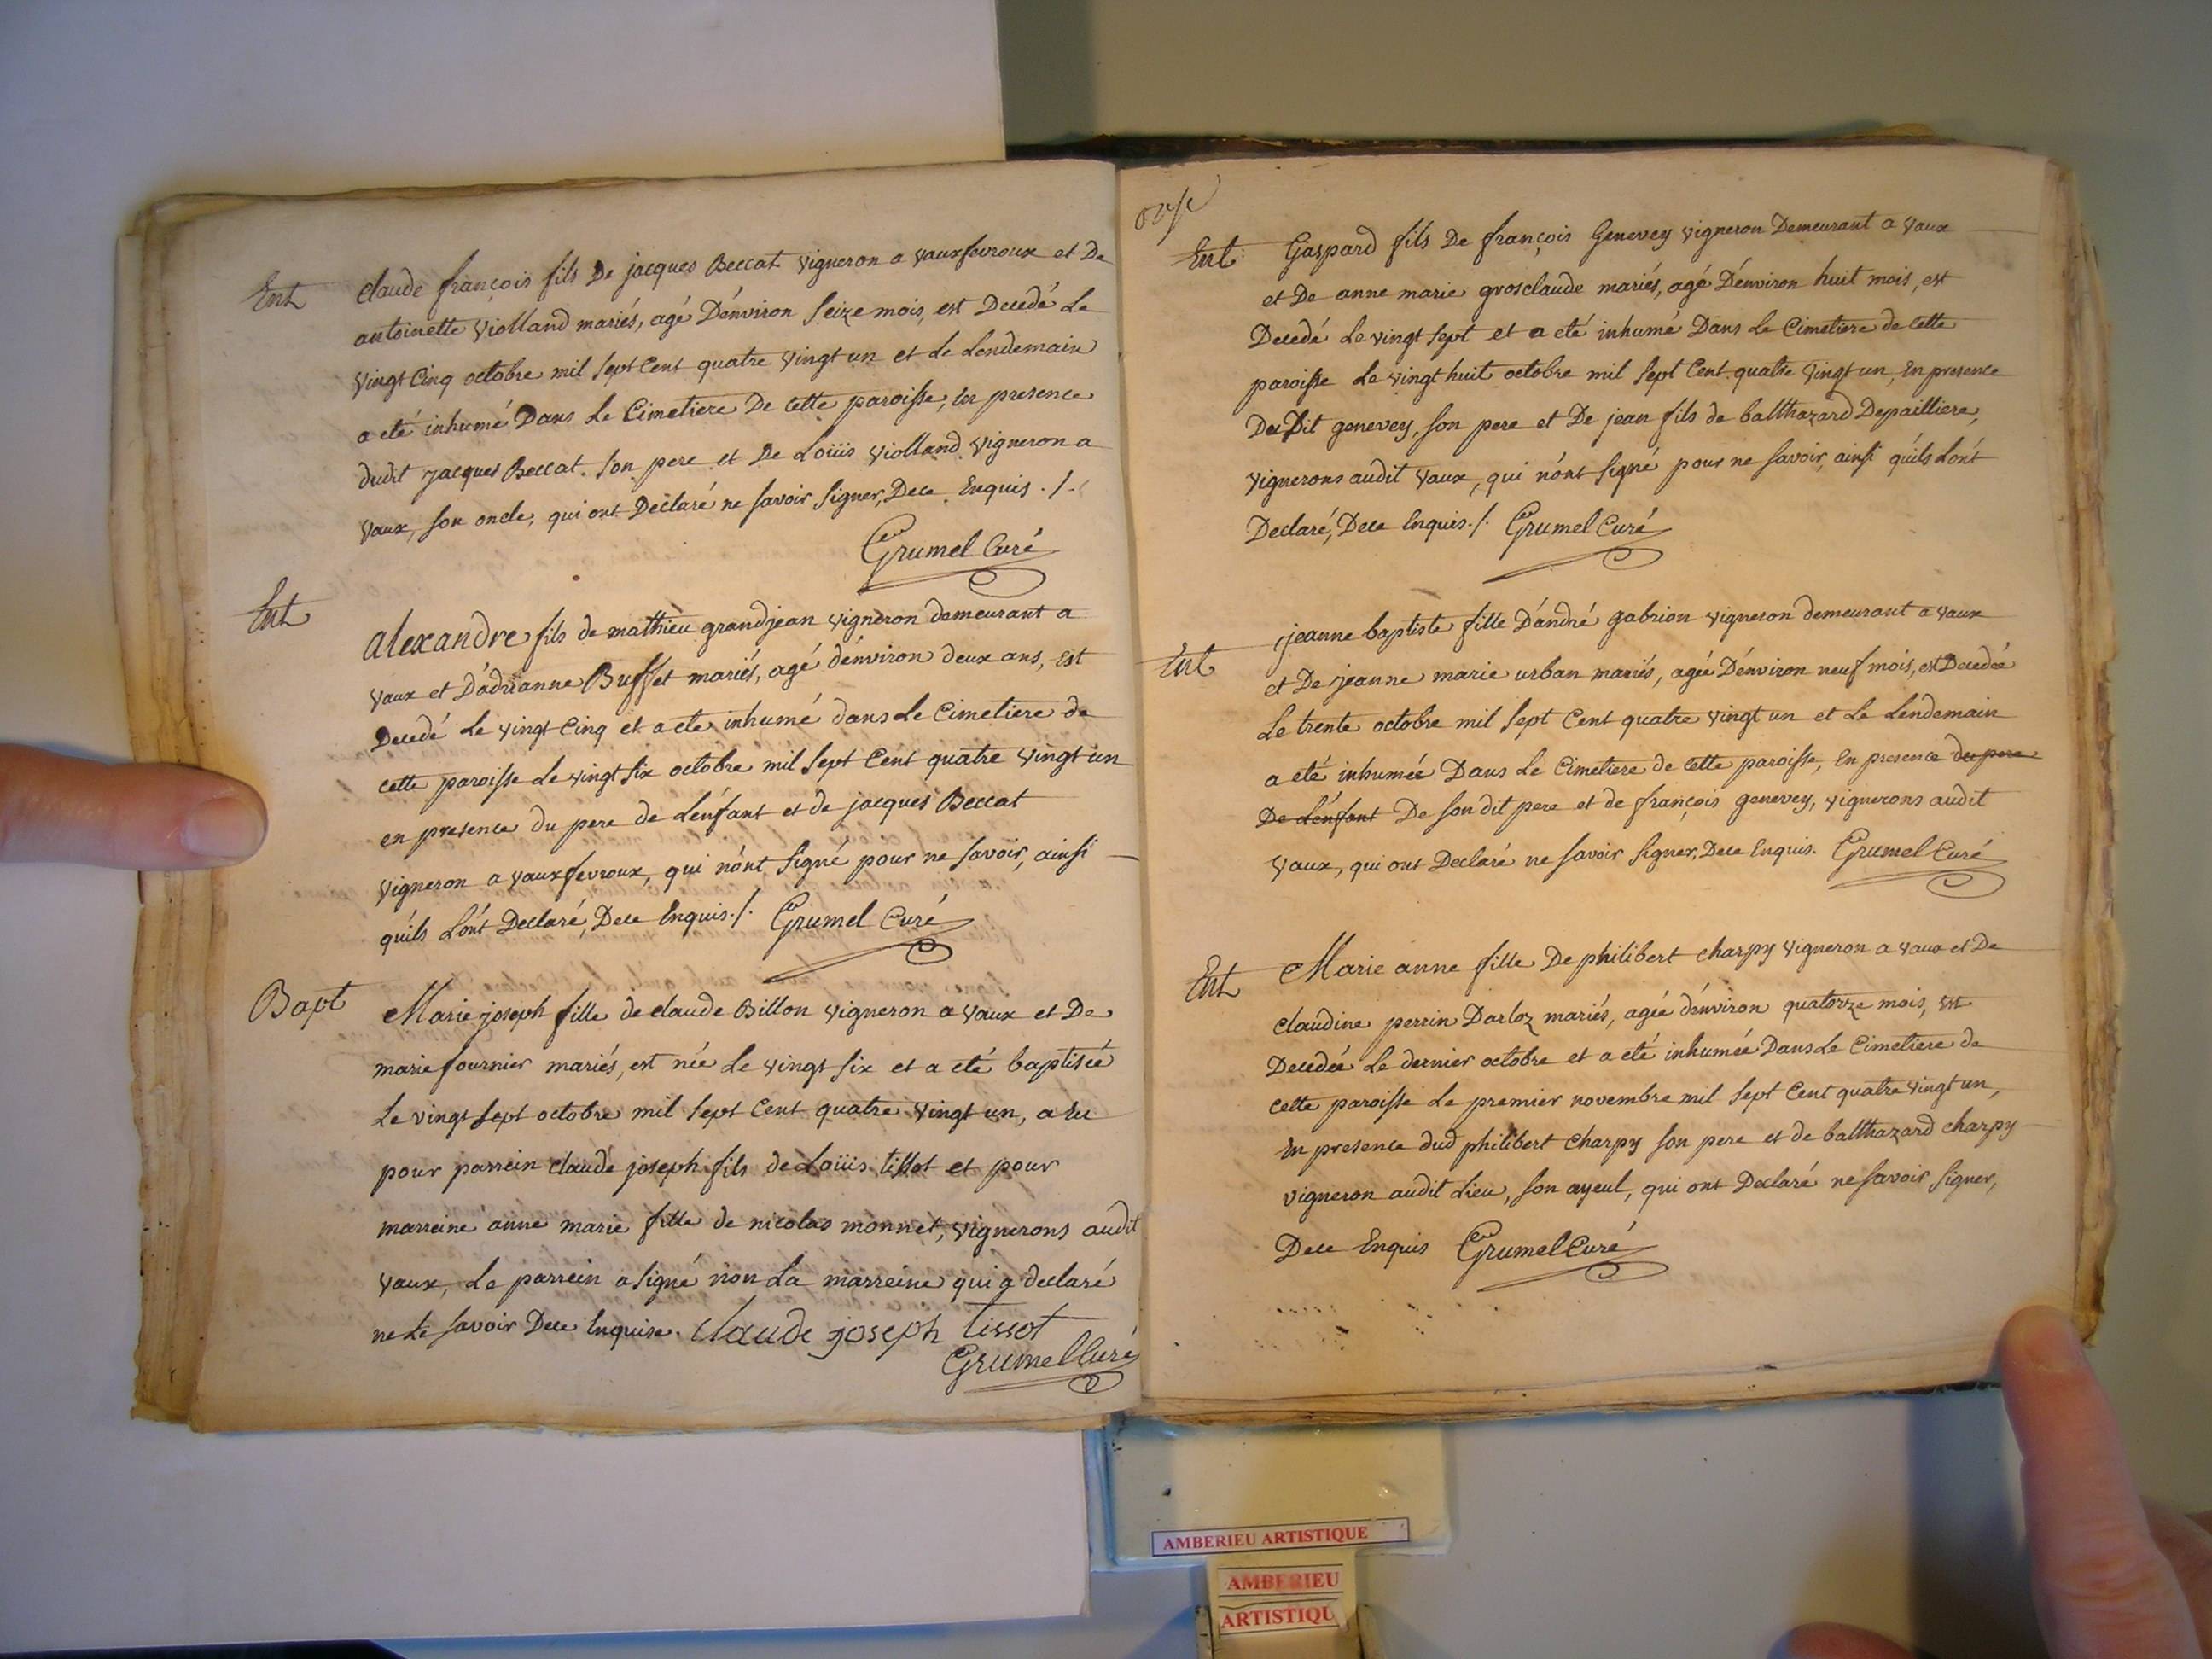 Ent claude françois fils De jacques Beccat vigneron a vauxfevroux et De
antoinette violland mariés, agé D'énviron seize mois, est Decedé Le
vingt Cinq octobre mil sept Cent quatre vingt un et Le Lendemain
a eté inhumé Dans Le Cimetiere De cette paroisse, En presence
dudit jacques Beccat son pere et De Loüis violland vigneron a
vaux, son oncle, qui ont Déclaré ne savoir signer, Dece Enquis ./.
Grumel Curé
Ent
alexandre fils de mathieu grandjean vigneron demeurant a
vaux et D'adrianne Buffet mariés, agé d'énviron deux ans, est
Decedé Le vingt Cinq et a eté inhumé dans Le Cimetiere de
cette paroisse Le vingt six octobre mil sept Cent quatre vingt un
en presence du pere de L'énfant et de jacques Beccat
vigneron a vauxfevroux, qui n'ónt signé pour ne savoir, ainsi
qu'ils L'ónt Declaré, Dece Enquis ./. Grumel Curé
Bapt Marie joseph fille de claude Billon vigneron a vaux et De
marie fournier mariés, est née Le vingt six et a eté baptisée
Le vingt sept octobre mil sept Cent quatre vingt un, a Eu
pour parrein claude joseph fils de Loüis tissot et pour
marreine anne marie fille de nicolas monnet, vignerons audit
vaux, Le parrein a signé non La marreine qui a declaré
ne Le savoir Dece Enquise. claude joseph tissot
Grumel Curé
Ent: Gaspard fils De françois Genevey vigneron Demeurant a vaux
et De anne marie grosclaude mariés, agé D'énviron huit mois, est
Decedé Le vingt sept et a eté inhumé Dans Le Cimetiere de cette
paroisse Le vingt huit octobre mil sept Cent quatre vingt un, En presence
DuDit genevey, son pere et De jean fils de balthazard Depailliere,
vignerons audit vaux, qui n'ónt signé pour ne savoir, ainsi qu'ils L'ónt
Declaré, Dece Enquis ./. Grumel Curé
jeanne baptiste fille D'andré gabrion vigneron demeurant a vaux
Ent et De jeanne marie urban mariés, agée D'énviron neuf mois, est Decedée
Le trente octobre mil sept Cent quatre vingt un et Le Lendemain
a eté inhumée Dans Le Cimetiere de cette paroisse, En presence du pere
De L'énfant De son dit pere et de françois genevey, vignerons audit
vaux, qui ont Declaré ne savoir signer, Dece Enquis. Grumel Curé
Ent Marie anne fille De philibert charpy vigneron a vaux et De
claudine perrin Darloz mariés, agée d'énviron quatorze mois, est
Decedée Le dernier octobre et a eté inhumée Dans Le Cimetiere de
cette paroisse Le premier novembre mil sept Cent quatre vingt un,
En presence dud philibert Charpy son pere et de balthazard charpy
vigneron audit Lieu, son ayeul, qui ont Declaré ne savoir signer,
Dece Enquis Grumel Curé
AMBERIEU ARTISTIQUE
AMBERIEU
ARTISTIQU